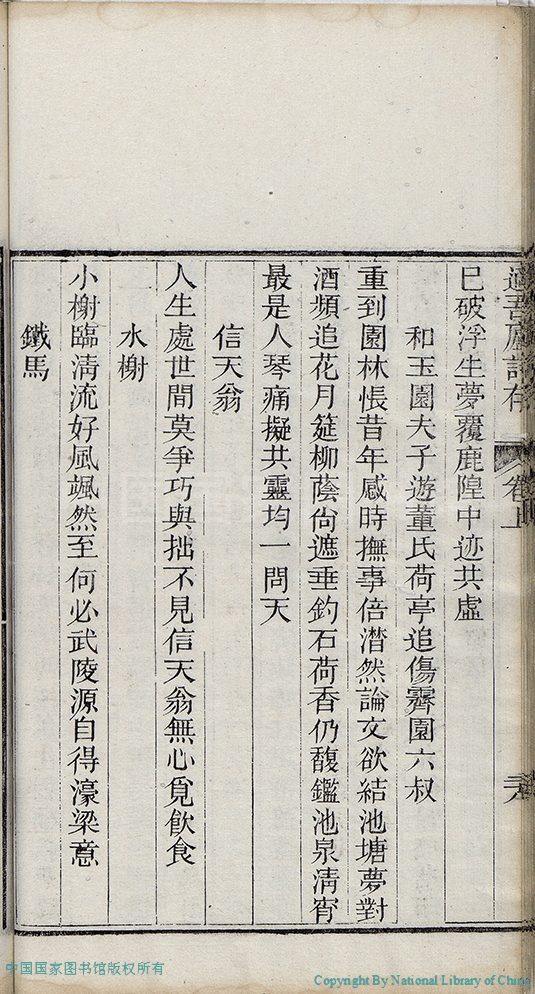 適吾廬詩存 卷上
已破浮生夢覆鹿隍中迹共虛
和玉園夫子遊董氏荷亭追傷霽園六叔
重到園林悵昔年感時撫事倍潸然論文欲結池塘夢對
酒頻追花月筵柳蔭尙遮垂釣石荷香仍馥鑑池泉淸宵
最是人琴痛擬共靈均一問天
信天翁
人生處世間莫爭巧與拙不見信天翁無心覓飮食
水榭
小榭臨淸流好風颯然至何必武陵源自得濠梁意
鐵馬
中国国家图书馆版权所有
Copyright By National Library of China